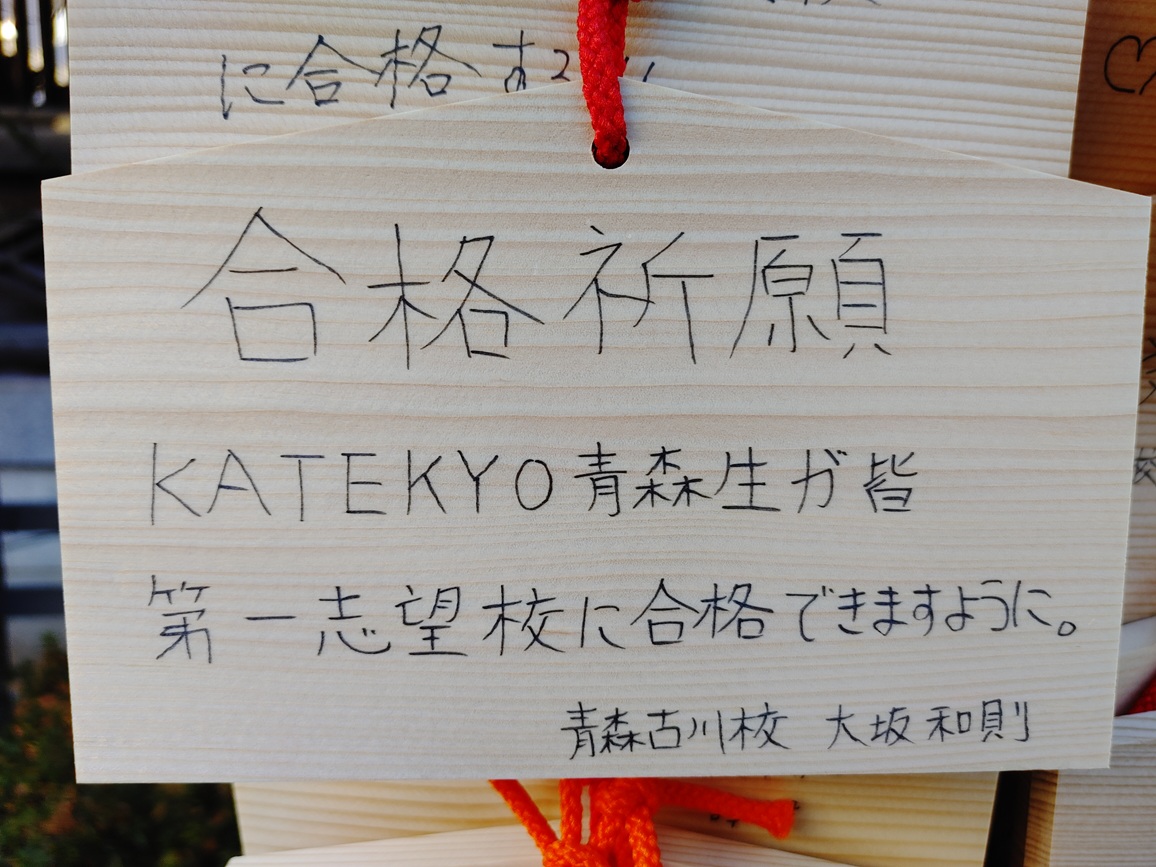 に合格
合格祈願
KATEKYO青森生が皆
第一志望校に合格できますように。
青森古川校 大坂和則